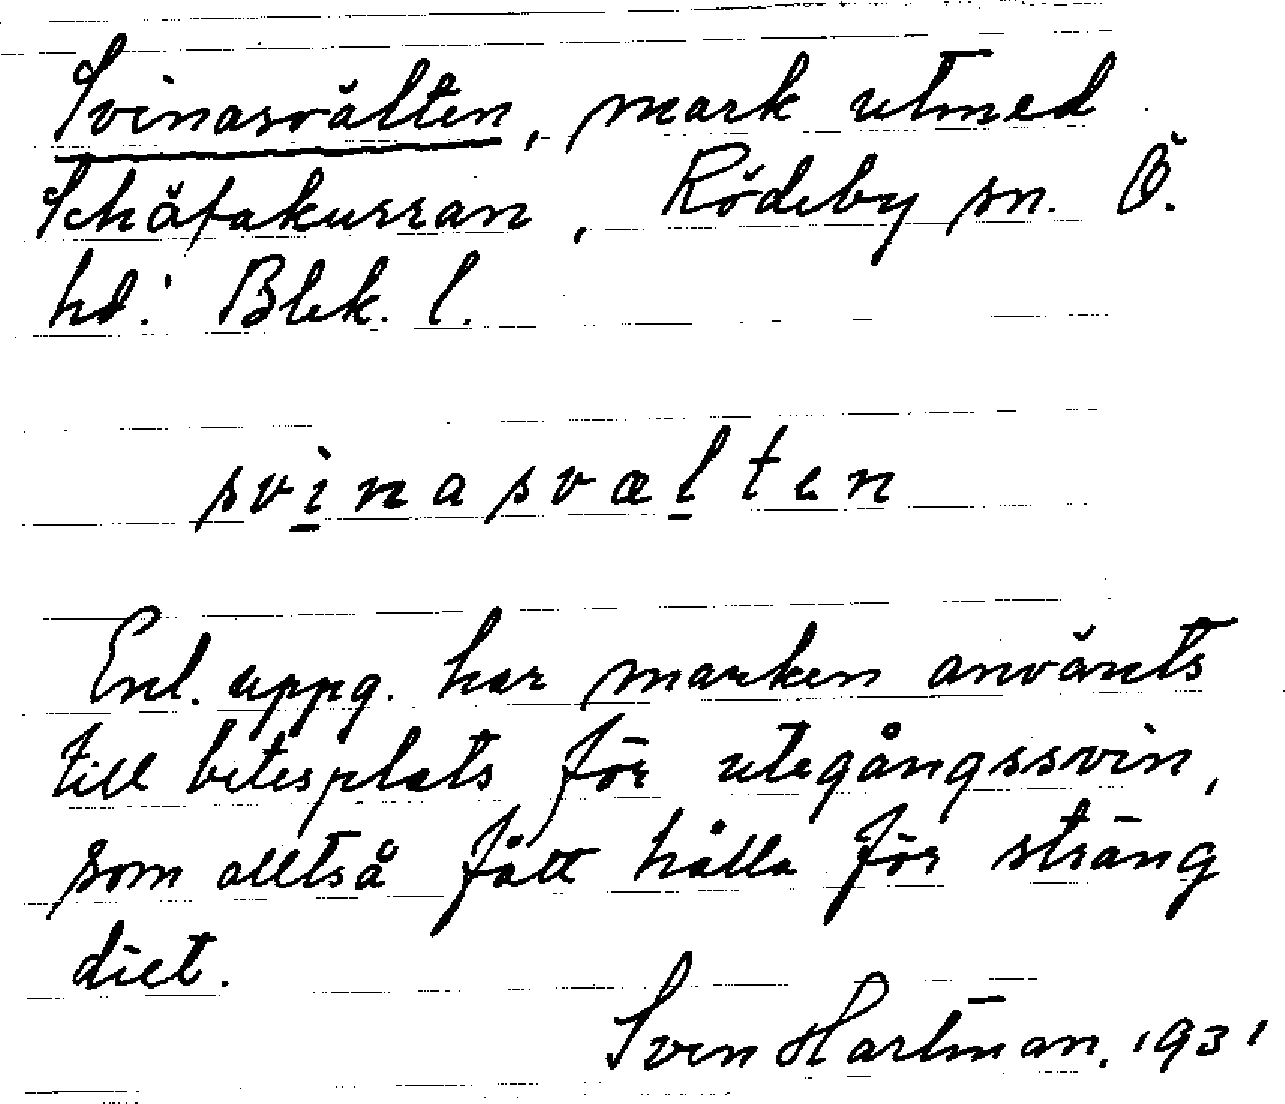 Svinasvälten, mark utmed
Schäfakurran, Rödeby sn. Ö.
hd. Blek. l.
svinasvælten
Enl. uppg. har marken använts
till betesplats för utegångssvin,
som alltså fått hålla för sträng
diet.
Sven Hartman. 1931